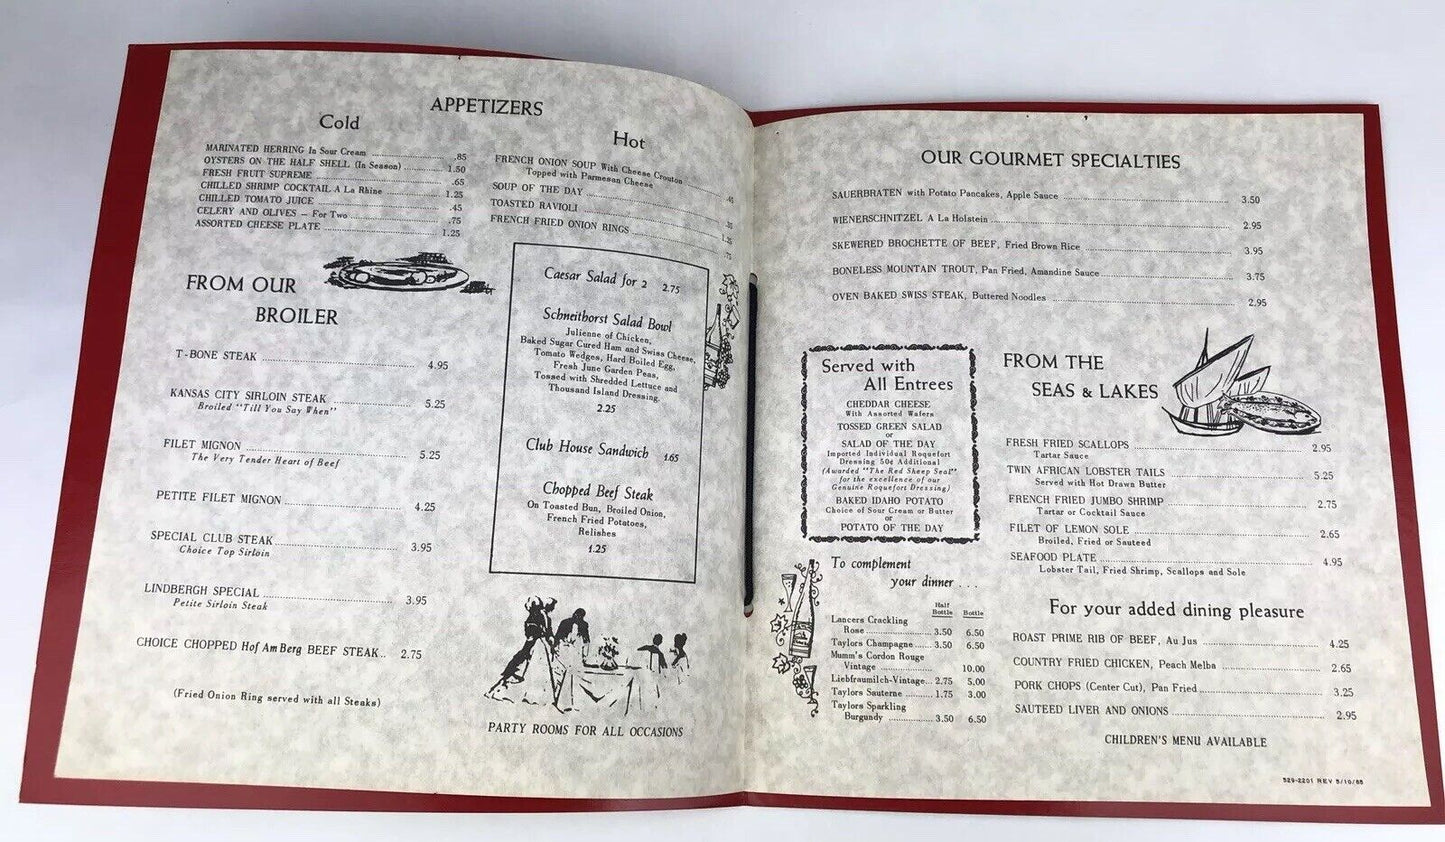 APPETIZERS
Cold
MARINATED HERRING In Sour Cream .85
OYSTERS ON THE HALF SHELL (In Season) 1.50
FRESH FRUIT SUPREME .65
CHILLED SHRIMP COCKTAIL A La Rhine 1.25
CHILLED TOMATO JUICE .45
CELERY AND OLIVES – For Two .75
ASSORTED CHEESE PLATE 1.25
Hot
FRENCH ONION SOUP With Cheese Crouton
Topped with Parmesan Cheese
SOUP OF THE DAY
TOASTED RAVIOLI 1.25
FRENCH FRIED ONION RINGS .75
FROM OUR
BROILER
T-BONE STEAK 4.95
KANSAS CITY SIRLOIN STEAK 5.25
Broiled "Till You Say When"
FILET MIGNON 5.25
The Very Tender Heart of Beef
PETITE FILET MIGNON 4.25
SPECIAL CLUB STEAK 3.95
Choice Top Sirloin
LINDBERGH SPECIAL 3.95
Petite Sirloin Steak
CHOICE CHOPPED Hof Am Berg BEEF STEAK.. 2.75
(Fried Onion Ring served with all Steaks)
Caesar Salad for 2 2.75
Schneithorst Salad Bowl
Julienne of Chicken,
Baked Sugar Cured Ham and Swiss Cheese,
Tomato Wedges, Hard Boiled Egg,
Fresh June Garden Peas,
Tossed with Shredded Lettuce and
Thousand Island Dressing.
2.25
Club House Sandwich 1.65
Chopped Beef Steak
On Toasted Bun, Broiled Onion,
French Fried Potatoes,
Relishes
1.25
PARTY ROOMS FOR ALL OCCASIONS
OUR GOURMET SPECIALTIES
SAUERBRATEN with Potato Pancakes, Apple Sauce 3.50
WIENERSCHNITZEL A La Holstein 2.95
SKEWERED BROCHETTE OF BEEF, Fried Brown Rice 3.95
BONELESS MOUNTAIN TROUT, Pan Fried, Amandine Sauce 3.75
OVEN BAKED SWISS STEAK, Buttered Noodles 2.95
Served with
All Entrees
CHEDDAR CHEESE
With Assorted Wafers
TOSSED GREEN SALAD
or
SALAD OF THE DAY
Imported Individual Roquefort
Dressing 50¢ Additional
(Awarded "The Red Sheep Seal"
for the excellence of our
Genuine Roquefort Dressing)
BAKED IDAHO POTATO
Choice of Sour Cream or Butter
or
POTATO OF THE DAY
To complement
your dinner . . .
Half
Bottle Bottle
Lancers Crackling
Rose 3.50 6.50
Taylors Champagne 3.50 6.50
Mumm's Cordon Rouge
Vintage 10.00
Liebfraumilch-Vintage 2.75 5.00
Taylors Sauterne 1.75 3.00
Taylors Sparkling
Burgundy 3.50 6.50
FROM THE
SEAS & LAKES
FRESH FRIED SCALLOPS 2.95
Tartar Sauce
TWIN AFRICAN LOBSTER TAILS 5.25
Served with Hot Drawn Butter
FRENCH FRIED JUMBO SHRIMP 2.75
Tartar or Cocktail Sauce
FILET OF LEMON SOLE 2.65
Broiled, Fried or Sauteed
SEAFOOD PLATE 4.95
Lobster Tail, Fried Shrimp, Scallops and Sole
For your added dining pleasure
ROAST PRIME RIB OF BEEF, Au Jus 4.25
COUNTRY FRIED CHICKEN, Peach Melba 2.65
PORK CHOPS (Center Cut), Pan Fried 3.25
SAUTEED LIVER AND ONIONS 2.95
CHILDREN'S MENU AVAILABLE
529-2201 REV 5/10/65